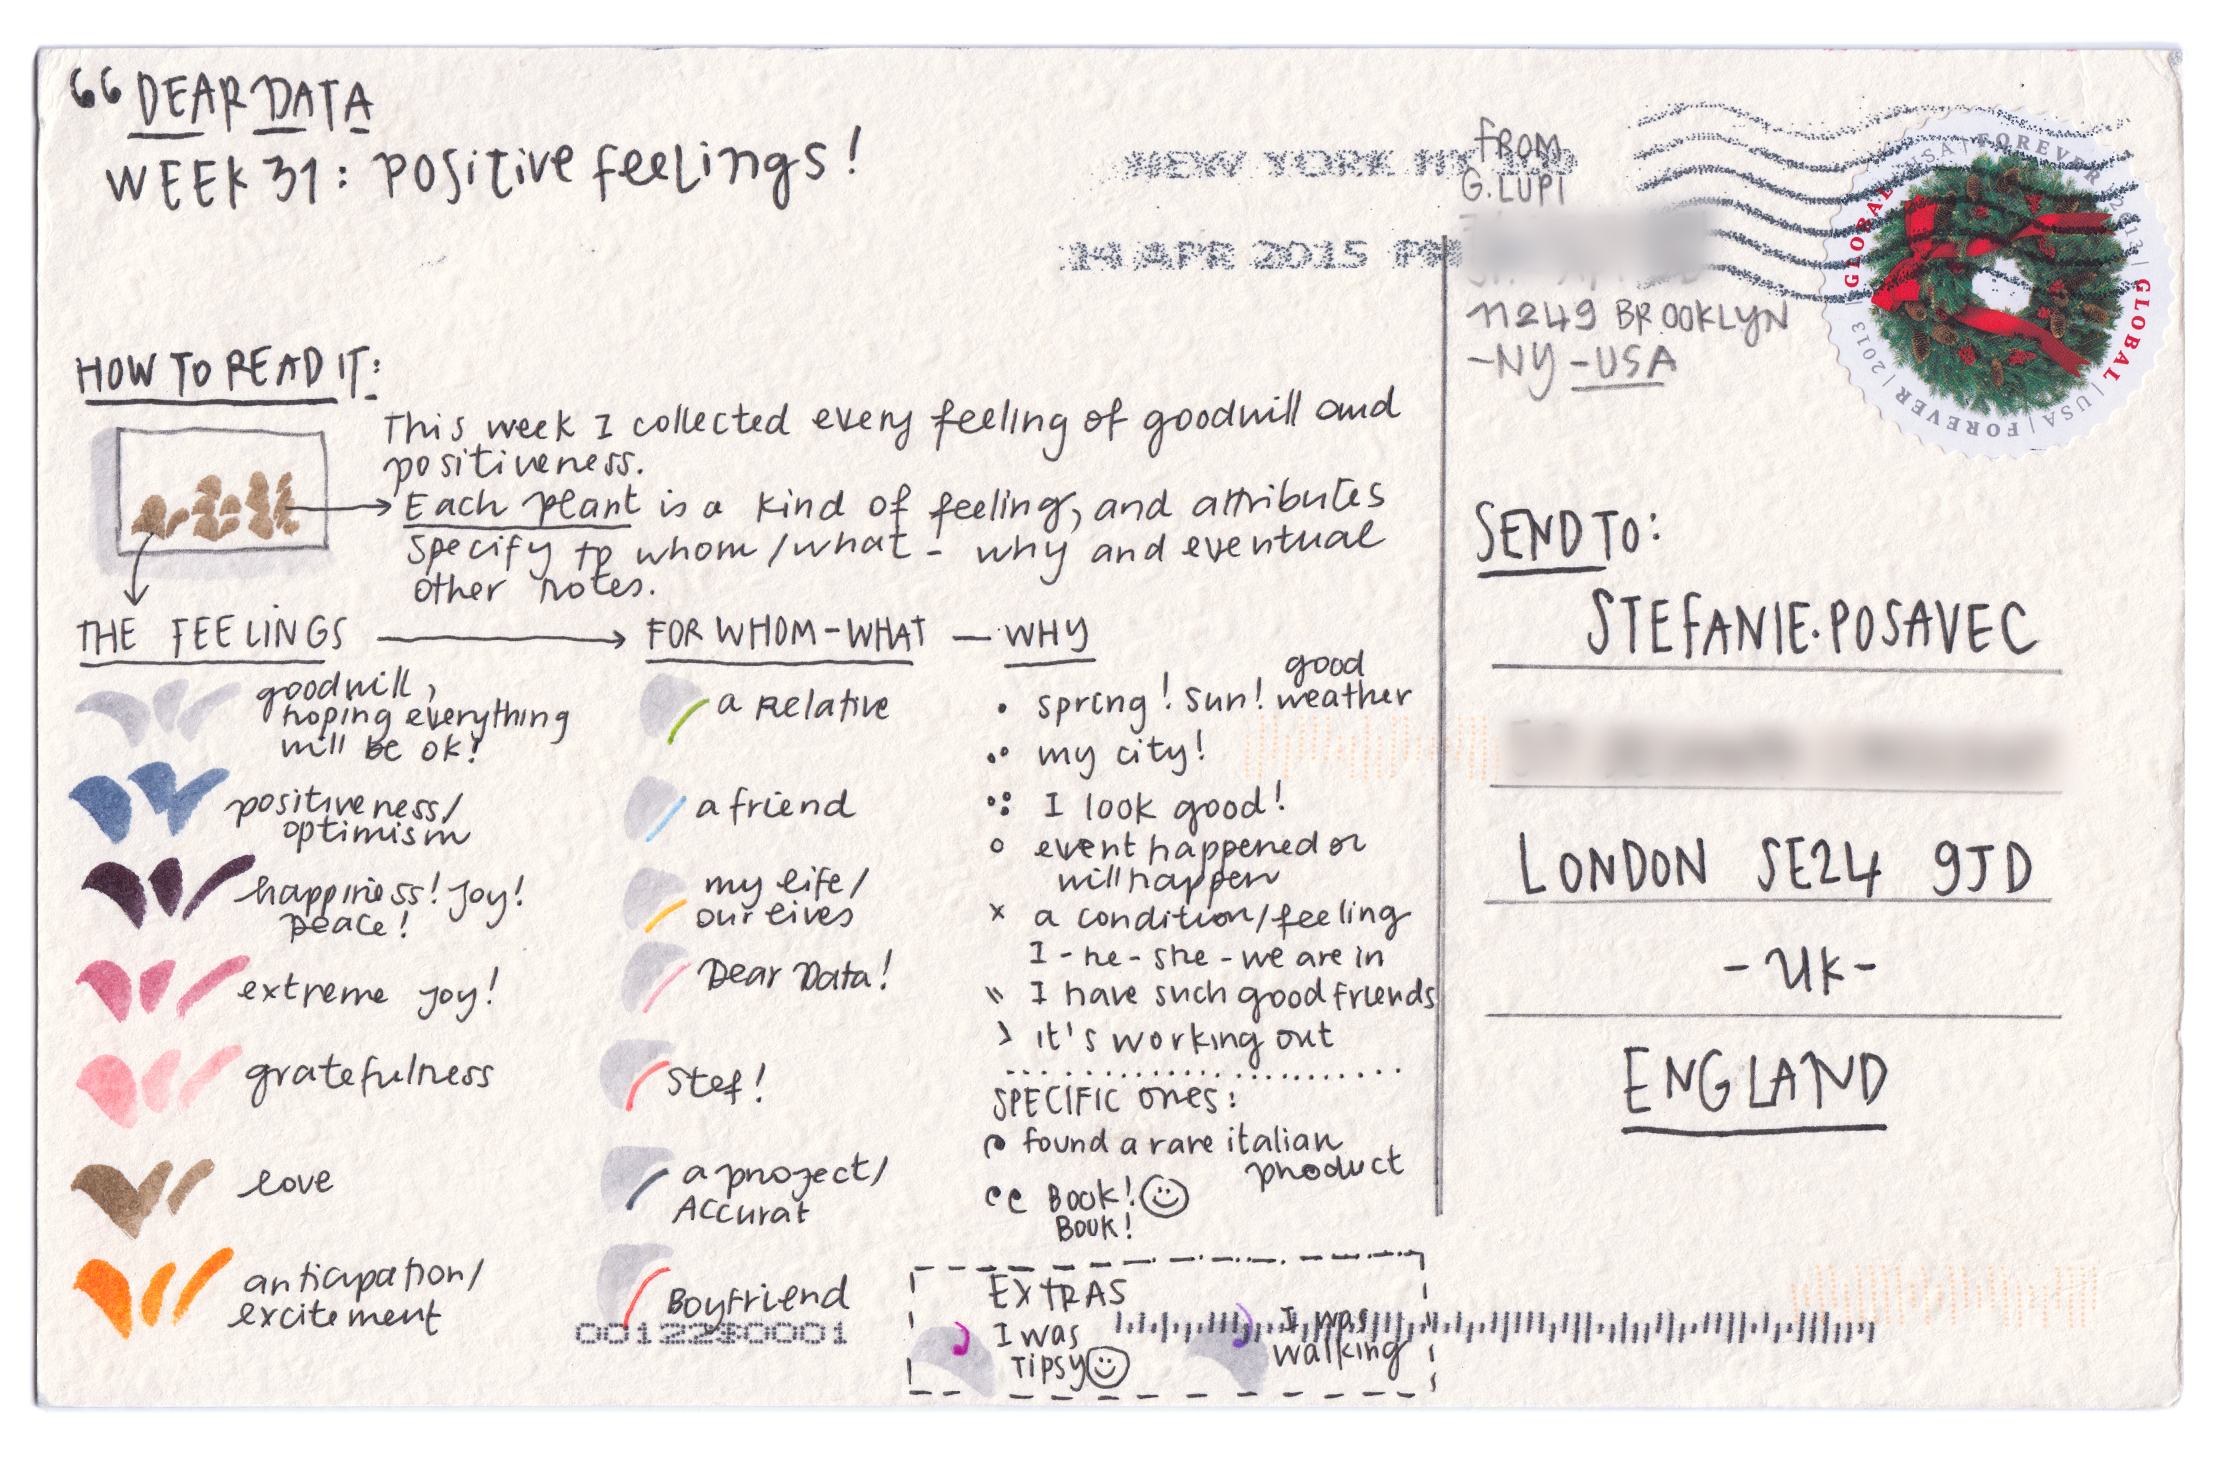 DEAR DATA
WEEK 31: positive feelings!
NEW YORK NY 100
14 APR 2015 PM
FROM
G. LUPI
11249 BROOKLYN
-NY-USA
GLOBAL | USA | FOREVER | 2013 | GLOBAL | USA | FOREVER | 2013 |
HOW TO READ IT:
This week I collected every feeling of goodwill and
positiveness.
Each plant is a kind of feeling, and attributes
specify to whom/what - why and eventual
other notes.
THE FEELINGS
goodwill,
hoping everything
will be ok!
positiveness/
optimism
happiness! Joy!
peace!
extreme joy!
gratefulness
love
anticipation/
excitement
FOR WHOM-WHAT
a Relative
a friend
my life/
our lives
Dear Data!
Stef!
a project/
Accurat
Boyfriend
WHY
spring! Sun! good weather
my city!
I look good!
event happened or
will happen
x a condition/feeling
I-he-she-we are in
I have such good friends
it's working out
SPECIFIC ONES:
found a rare italian
product
Book!
Book!
EXTRAS
I was
Tipsy
I was
walking
00122$0001
SEND TO:
STEFANIE.POSAVEC
LONDON SE24 9JD
-UK-
ENGLAND